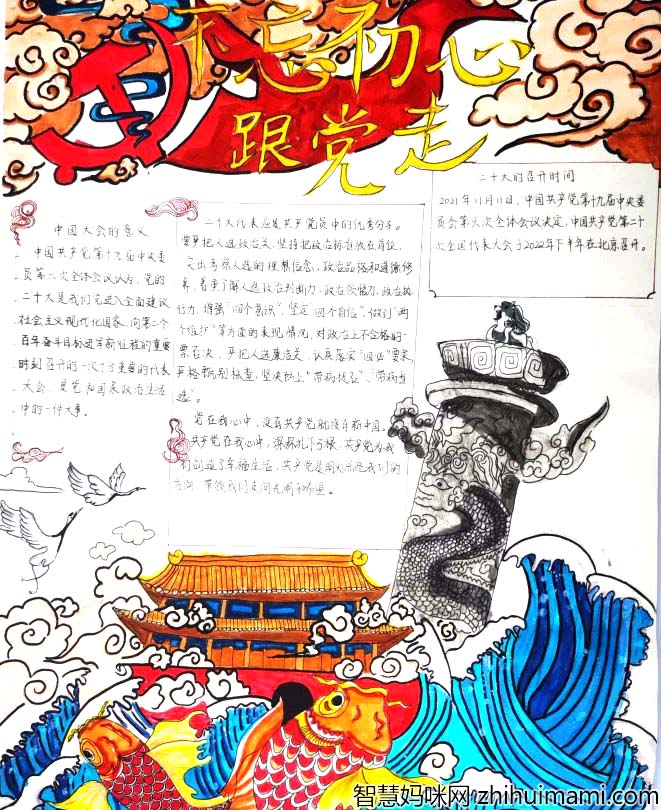 不忘初心
跟党走
二十大的召开时间
2021年11月11日,中国共产党第十九届中央委
员会第六次全体会议决定,中国共产党第二十
次全国代表大会于2022年下半年在北京召开。
中国大会的意义
中国共产党第十九届中央委
员第六次全体会议认为,党的
二十大是我们党进入全面建设
社会主义现代化国家、向第二个
百年奋斗目标进军新征程的重要
时刻召开的一次十分重要的代表
大会,是党和国家政治生活
中的一件大事。
二十大代表应是共产党员中的优秀分子。
要严把人选政治关,坚持把政治标准放在首位,
突出考察人选的理想信念、政治品格和道德修
养,着重了解人选政治判断力、政治领悟力、政治执
行力,增强“四个意识”、坚定“四个自信”、做到“两
个维护”等方面的表现情况,对政治上不合格的一
票否决。严把人选廉洁关,认真落实“四必”要求,
严格甄别核查,坚决防止“带病提名”、“带病当
选”。
党在我心中,没有共产党就没有新中国。
共产党在我心中,深深扎下了根,共产党为我
们创造了幸福生活,共产党是
方向,带领我们走向光明和希望。
智慧妈咪网 zhihuimami.com